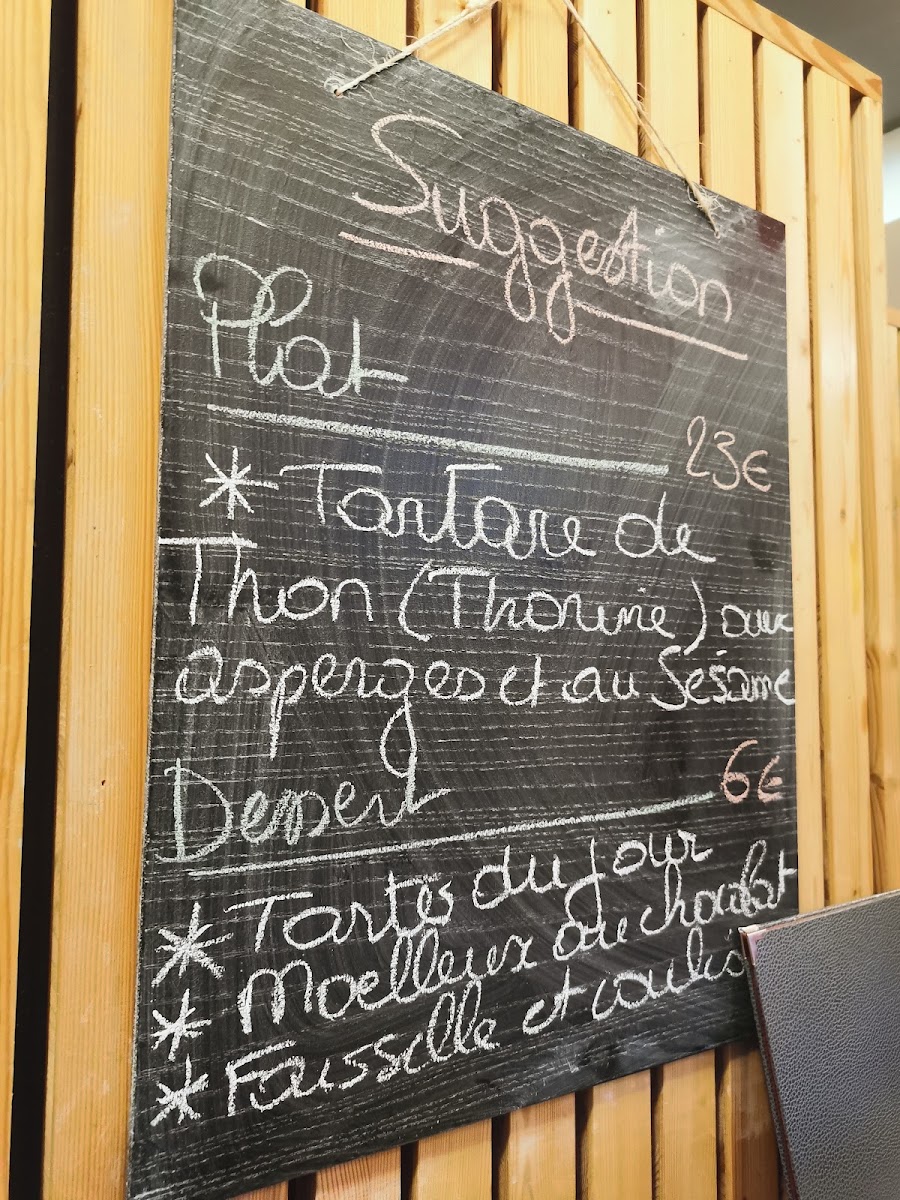 Suggestion
Plat
23€
* Tartare de
Thon (Thonine) avec
asperges et au Sesame
Dessert
6€
* Tartes du jour
* Moelleux au chocolat
* Faisselle et coulis